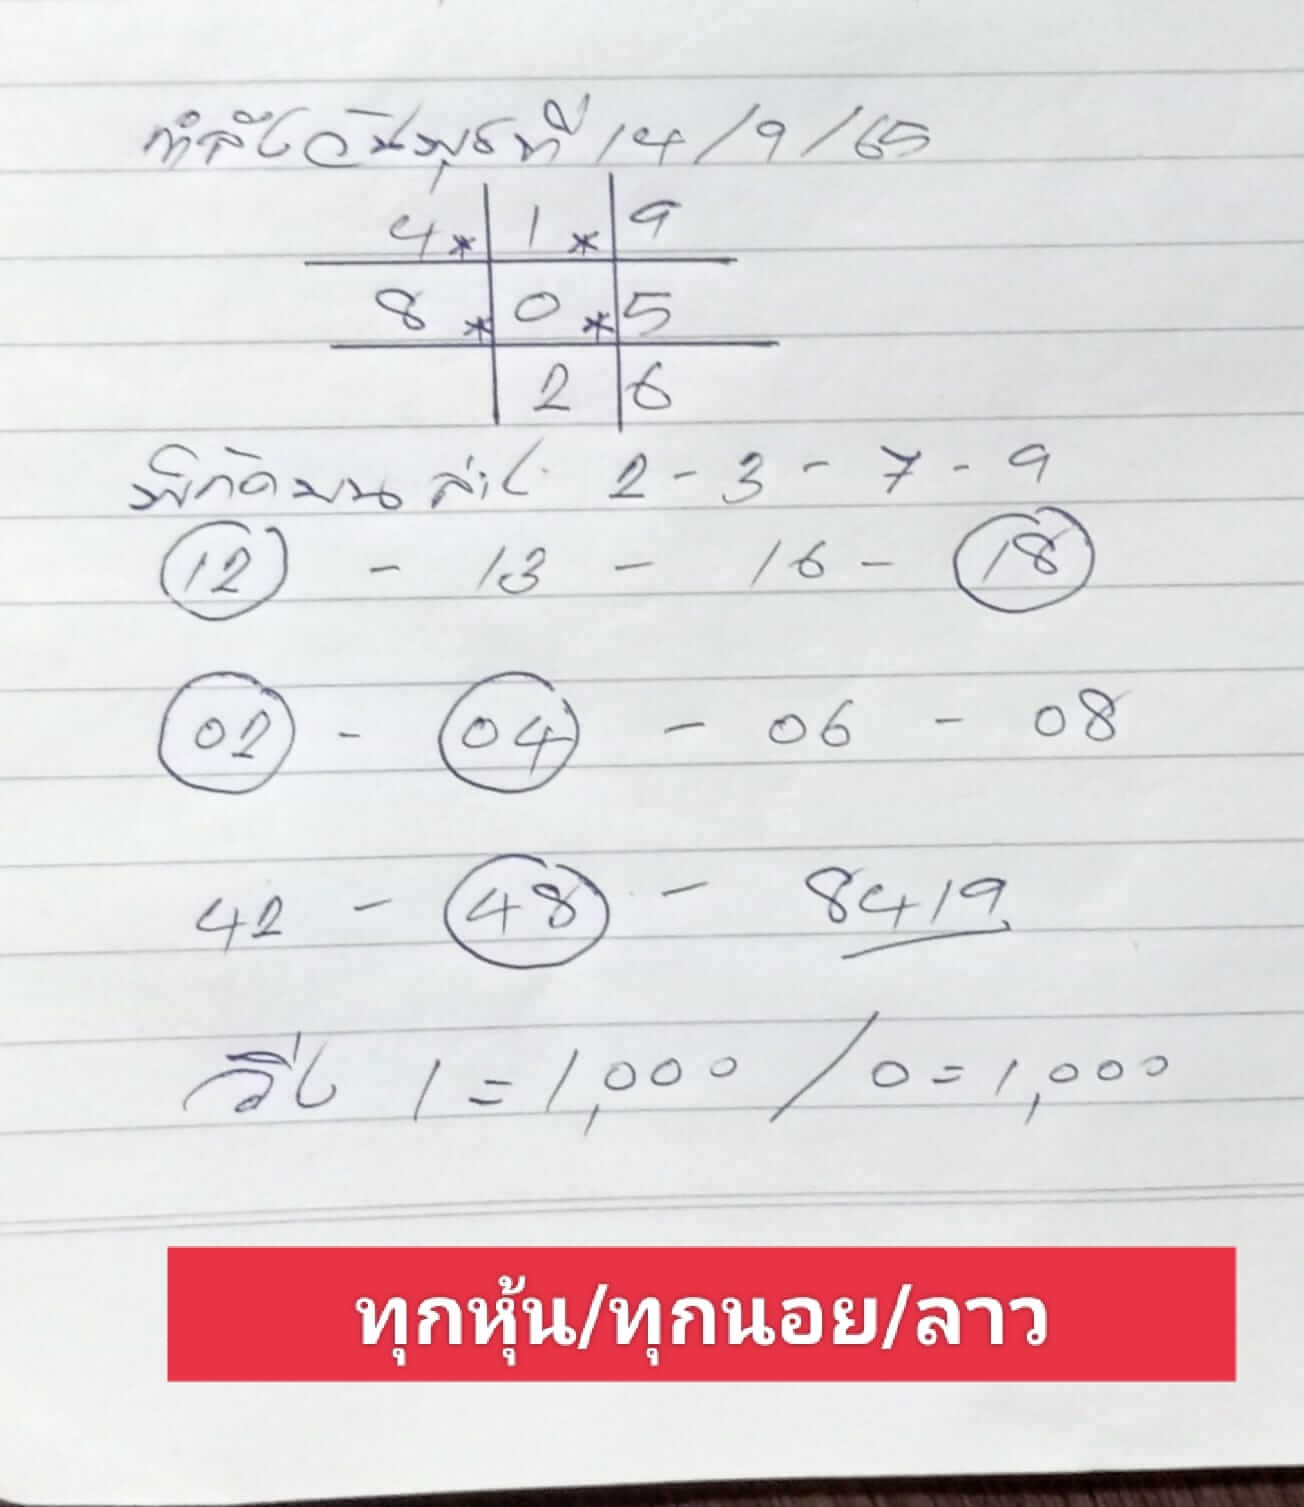 กำลังวันพุธที่ 14/9/65
4* 1* 9
8* 0* 5
2 6
พิกัดบน ล่าง 2 - 3 - 7 - 9
12 - 13 - 16 - 18
02 - 04 - 06 - 08
42 - 48 - 8419
วิ่ง 1 = 1,000 / 0 = 1,000
ทุกหุ้น/ทุกนอย/ลาว